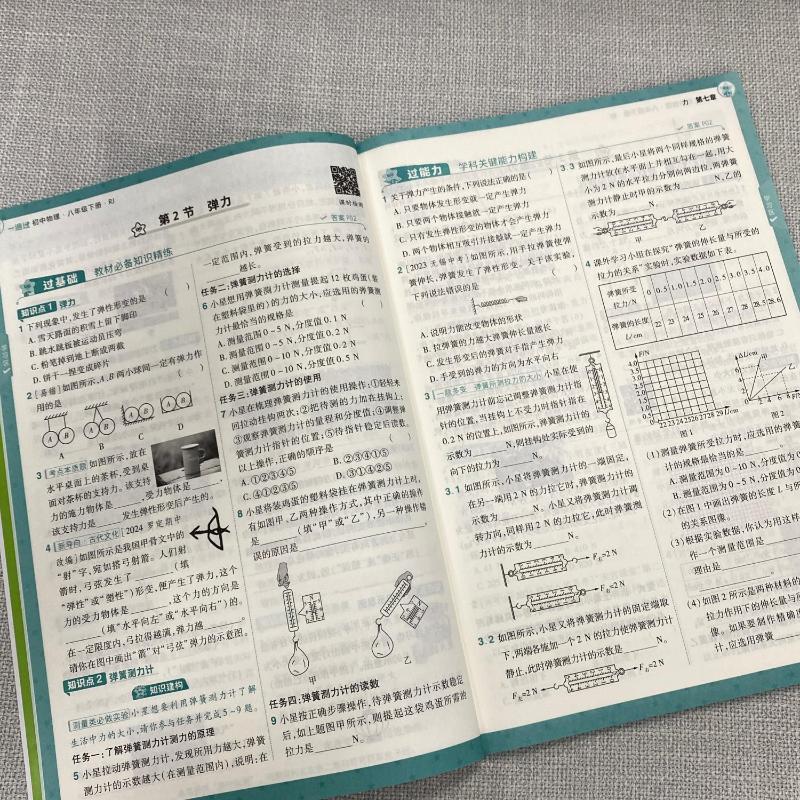 一遍过 初中物理·八年级下册·RJ
第2节 弹力
课时检测
答案 P02
过基础 教材必备知识精练
知识点1 弹力
1 下列现象中,发生了弹性形变的是 ( )
A. 雪天路面的积雪上留下脚印
B. 跳水跳板被运动员压弯
C. 粉笔掉到地上断成两截
D. 饼干一捏变成碎片
2 [易错]如图所示,A、B两小球间一定有弹力作
用的是 ( )
A B A B A B A B
A B C D
3 考点本质题 如图所示,放在
水平桌面上的茶杯,受到桌
面对茶杯的支持力。该支持
力的施力物体是 ,受力物体是 ,
该支持力是 发生弹性形变后产生的。
4 新导向 古代文化 [2024 罗定期中
改编]如图所示是我国甲骨文中的
“射”字,宛如搭弓射箭。人们射
箭时,弓弦发生了 (填
“弹性”或“塑性”)形变,便产生了弹力,这个
力的受力物体是 ,这个力的方向是
(填“水平向左”或“水平向右”)的。
在一定限度内,弓拉得越满,弹力越 。
请你在图中画出“箭”对“弓弦”弹力的示意图。
知识点2 弹簧测力计
知识建构
测量类必做实验 小星想要利用弹簧测力计了解
生活中力的大小,请你参与任务并完成5~9题。
任务一:了解弹簧测力计测力的原理
5 小星拉动弹簧测力计,发现所用力越大,弹簧
测力计的示数越大(在测量范围内),说明:在
一定范围内,弹簧受到的拉力越大,弹簧的
越长。
任务二:弹簧测力计的选择
6 小星想用弹簧测力计测量提起12枚鸡蛋(装
在塑料袋里的)的力的大小,应选用的弹簧测
力计最恰当的规格是 ( )
A. 测量范围0~5 N,分度值0.1 N
B. 测量范围0~5 N,分度值0.2 N
C. 测量范围0~10 N,分度值0.2 N
D. 测量范围0~10 N,分度值0.5 N
任务三:弹簧测力计的使用
7 小星在梳理弹簧测力计的使用操作:①轻轻来
回拉动挂钩两次;②把待测的力加在挂钩上;
③观察弹簧测力计的量程和分度值;④调整弹
簧测力计指针的位置;⑤待指针稳定后读数。
以上操作,正确的顺序是 ( )
A. ①②③④⑤ B. ②③④①⑤
C. ④①②③⑤ D. ③①④②⑤
8 小星将装鸡蛋的塑料袋挂在弹簧测力计上时,
有如图甲、乙两种操作方式,其中正确的操作
是 (填“甲”或“乙”),另一种操作错
误的原因是
甲 乙
任务四:弹簧测力计的读数
9 小星按正确步骤操作,待弹簧测力计示数稳定
后,如上题图甲所示,则提起这袋鸡蛋所需的
拉力是 N。
力 第七章
答案 P02
过能力 学科关键能力构建
1 关于弹力产生的条件,下列说法正确的是( )
A. 只要物体发生形变就一定产生弹力
B. 只要两个物体接触就一定产生弹力
C. 只有发生弹性形变的物体才会产生弹力
D. 两个物体相互吸引并接触就一定产生弹力
2 [2023 无锡中考]如图所示,用手拉弹簧使弹
簧伸长,弹簧发生了弹性形变。关于该实验,
下列说法错误的是 ( )
A. 说明力能改变物体的形状
B. 拉弹簧的力越大弹簧伸长量越长
C. 发生形变后的弹簧对手指产生弹力
D. 手受到的弹力的方向为水平向右
3 一题多变 弹簧所测拉力的大小 小星在使
用弹簧测力计前忘记调整弹簧测力计指
针的位置,当挂钩上不受力时指针指在
0.2 N的位置上,如图所示,弹簧测力计的
示数为 N,则挂钩处实际受到的
向下的拉力为 N。
3.1 如图所示,小星将弹簧测力计的一端固定,
在另一端用2 N的力拉它时,弹簧测力计的
示数为 N。小星又将弹簧测力计调
转方向,同样用2 N的力拉它,此时弹簧测
力计的示数为 N。
F右=2 N
F右=2 N
3.2 如图所示,小星又将弹簧测力计的固定端取
下,两端各施加一个2 N的拉力使弹簧测力计
静止,此时弹簧测力计的示数是 N。
F左=2 N F右=2 N
3.3 如图所示,最后小星将两个同样规格的弹簧
测力计放在水平面上并相互勾在一起,用大
小为2 N的水平拉力分别向两边拉,两弹簧
测力计静止时甲的示数为 N,乙的
示数为 N。
甲 乙
4 课外学习小组在探究“弹簧的伸长量与所受的
拉力的关系”实验时,实验数据如下表。
弹簧所受拉力/N 0 0.5 1.0 1.5 2.0 2.5 3.0 3.5 4.0
弹簧的长度L/cm 22 23 24 25 26 27 28 28.5 28.6
F/N
4.0
3.5
3.0
2.5
2.0
1.5
1.0
0.5
0 22 23 24 25 26 27 28 29 L/cm
图1
ΔL/cm
F/N
图2
(1)测量弹簧所受拉力时,应选用的弹簧
计的规格最恰当的是
A. 测量范围为0~10 N,分度值为
B. 测量范围为0~5 N,分度值为
(2)在图1中画出弹簧的长度L与所
的关系图像。
(3)根据实验数据,你认为用这样
作一个测量范围是
理由是
(4)如图2所示是两种材料的
拉力作用下的伸长量与所
像。如果要制作精确
计,应选用弹簧